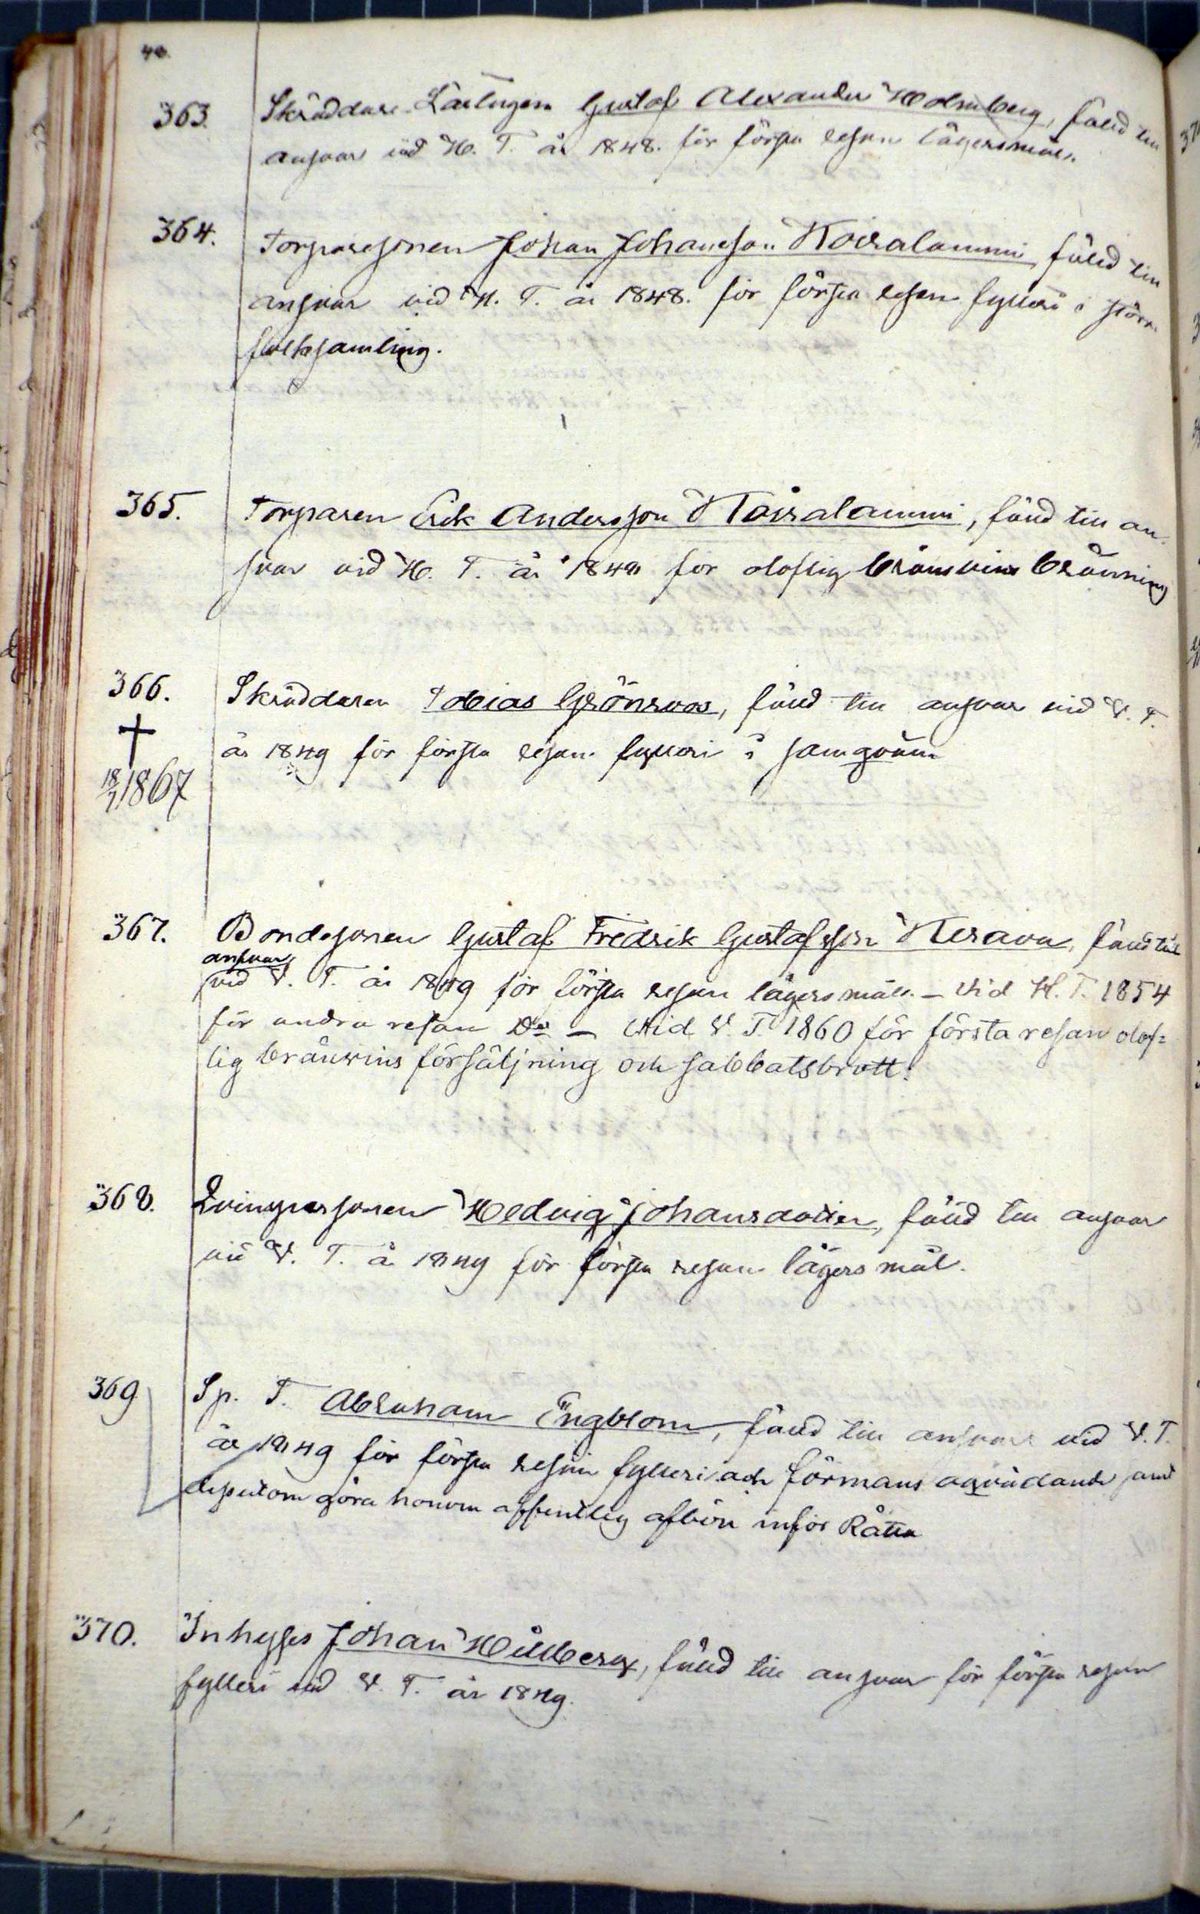 40.
363. Skräddare Lärlingen Gustaf Alexander Holmberg, fälld till
ansvar vid H. T. år 1848. för första resan lägersmål.
364. Torparesonen Johan Johansson Koiralammi, fälld till
ansvar vid H. T. år 1848. för första resan fylleri i större
folksamling.
365. Torparen Erik Andersson Koiralammi, fälld till an-
svar vid H. T. år 1848 för oloflig bränvins bränning
366. Skräddaren Tobias Grönroos, fälld till ansvar vid V. T.
år 1849 för första resan fylleri i samqväm
18/7 1867
367. Bondesonen Gustaf Fredrik Gustafsson Kerava, fälld till
ansvar
vid V. T. år 1849 för första resan lägersmål. – Vid H. T. 1854
för andra resan Do – Vid V. T. 1860 för första resan olof-
lig bränvins försäljning och sabbatsbrott.
368. Qvinspersonen Hedvig Johansdotter, fälld till ansvar
vid V. T. år 1849 för första resan lägersmål.
369 Sp. T. Abraham Engblom, fälld till ansvar vid V. T.
år 1849 för första resan fylleri och förmans oqvädande samt
dessutom göra honom offentlig afbön inför Rätta
370. Inhyses Johan Hillberg, fälld till ansvar för första resan
fylleri vid V. T. år 1849.